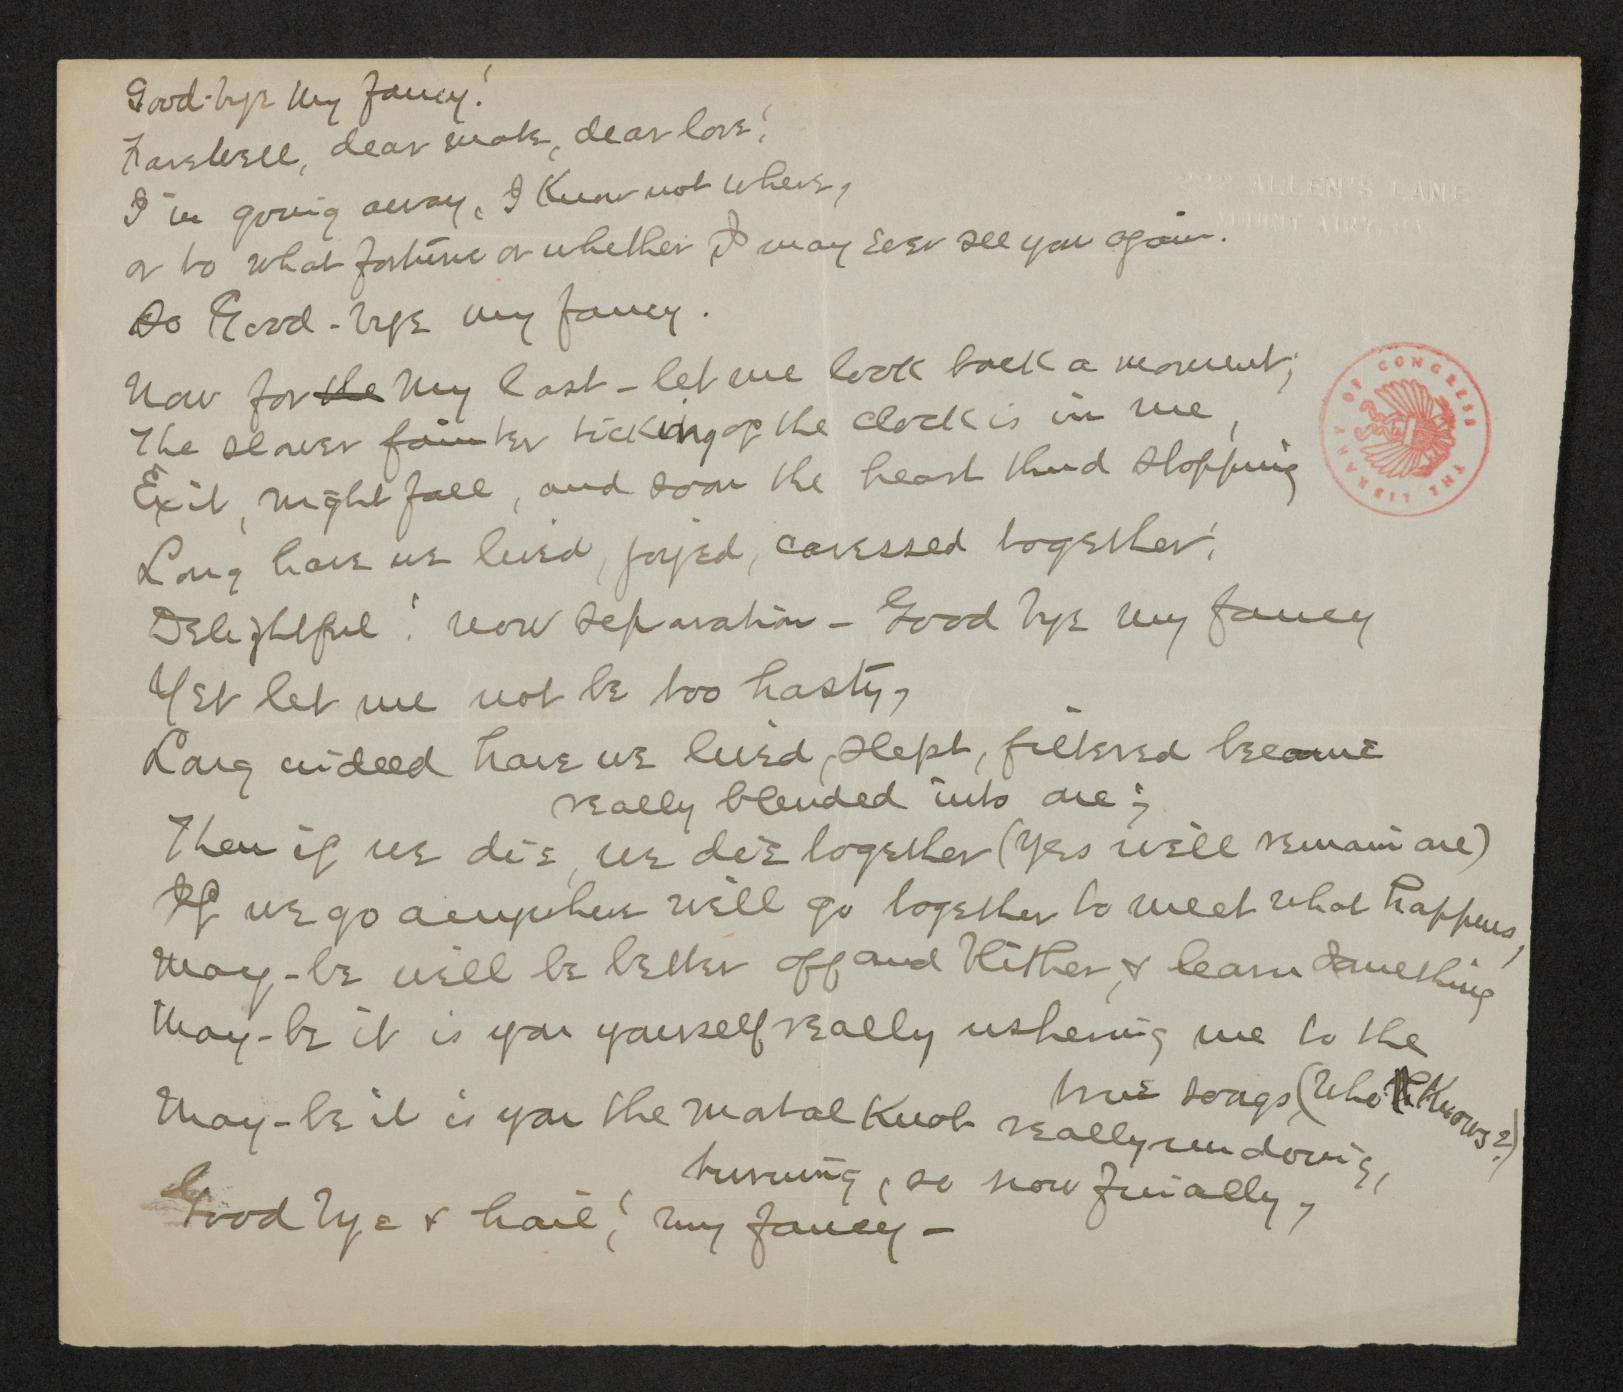 Good-bye my fancy!
Farewell, dear mate, dear love!
I'm going away, I know not where,
or to what fortune or whether I may ever see you again.
So Good-bye my fancy.
ALLEN'S LANE
MOUNT AIRY, PA
Now for the my last - let me look back a moment;
The slower fainter ticking of the clock is in me,
Exit, nightfall, and soon the heart thud stopping
Long have we lived, joyed, caressed together;
Delightful! now separation - Good bye my fancy
Yet let me not be too hasty,
Long indeed have we lived, slept, filtered became
really blended into one;
Then if we die, we die together (Yes well remain one)
If we go anywhere well go together to meet what happens,
May-be well be better off and blither, & learn something
May-be it is you yourself really ushering me to the
true songs (who knows?)
May-be it is you the mortal knob really undoing,
turning, so now finially,
Good bye & hail! my fancy -
LIBRARY OF CONGRESS
THE